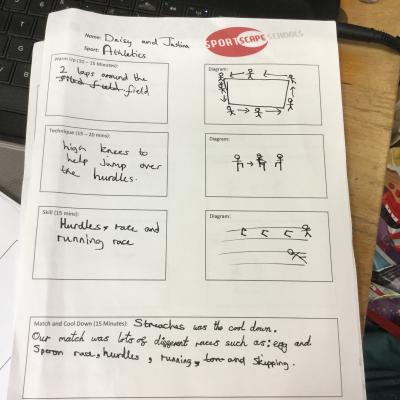 Name: Daisy and Jasline
Sport: Athletics
SPORTSCAPE SCHOOLS
Warm Up (10 – 15 Minutes):
2 laps around the
field
Diagram:
Technique (15 – 20 mins):
high knees to
help jump over
the hurdles.
Diagram:
Skill (15 mins):
Hurdles race and
running race
Diagram:
Match and Cool Down (15 Minutes): Streaches was the cool down.
Our match was lots of different races such as: egg and
Spoon race, hurdles, running, and Skipping.